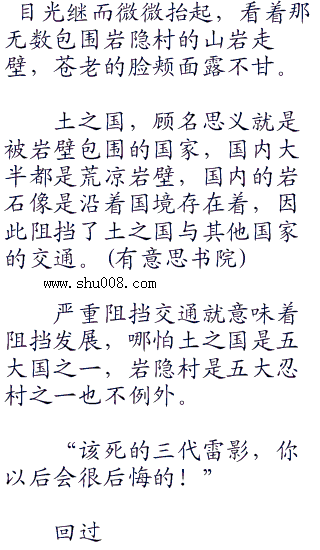 目光继而微微抬起，看着那
无数包围岩隐村的山岩走
壁，苍老的脸颊面露不甘。
土之国，顾名思义就是
被岩壁包围的国家，国内大
半都是荒凉岩壁，国内的岩
石像是沿着国境存在着，因
此阻挡了土之国与其他国家
的交通。(有意思书院)
www.shu008.com
严重阻挡交通就意味着
阻挡发展，哪怕土之国是五
大国之一，岩隐村是五大忍
村之一也不例外。
“该死的三代雷影，你
以后会很后悔的！”
回过